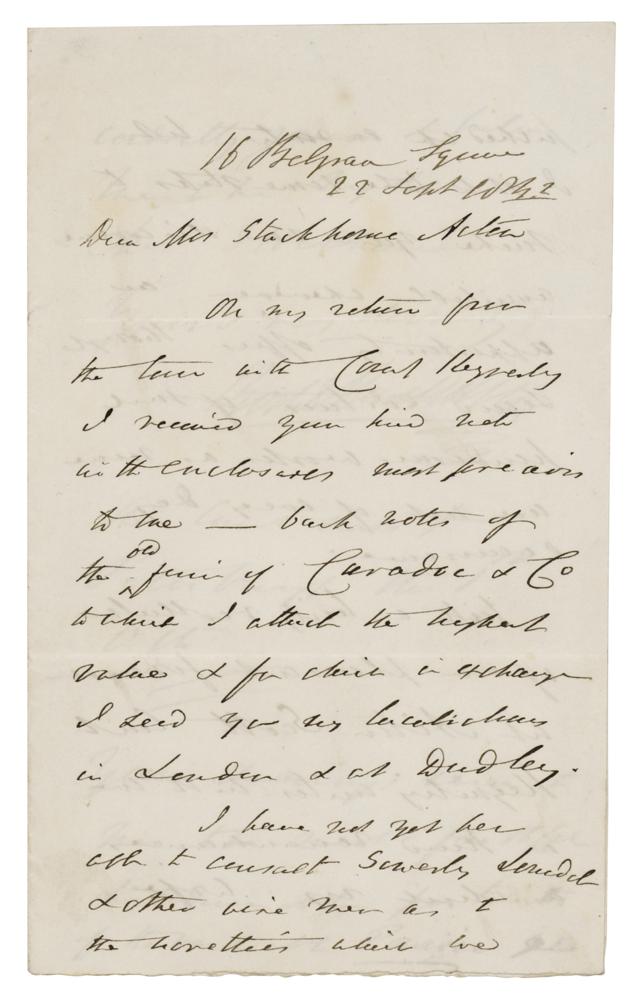 16 Belgrave Square
22 Sept 1842
Dear Mrs Stackhouse Acton
On my return from
the tour with Count Keyserling
I received your kind note
with enclosures most precious
to me — bank notes of
the old firm of Caradoc & Co
to which I attach the highest
value & for which in exchange
I send you my lucubrations
in London & at Dudley.
I have not yet been
able to consult Sowerby Lonsdale
& other wise men as to
the novelties which we